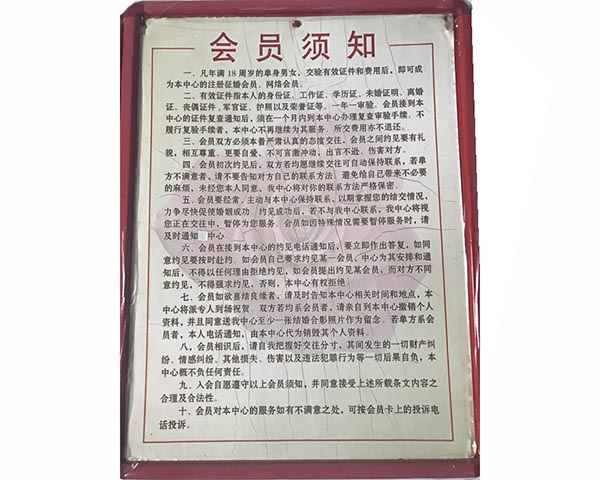 会员须知
一、凡年满18周岁的单身男女，交验有效证件和费用后，即可成
为本中心的注册征婚会员、网络会员。
二、有效证件指本人的身份证、工作证、学历证、未婚证明、离婚
证、丧偶证件、军官证、护照以及荣誉证等。一年一审验。会员接到本中
心的证件复查通知后，须在一个月内到本中心办理复查审验手续。不
履行复验手续者，本中心不再继续为其服务，所交费用亦不退还。
三、会员双方必须本着严肃认真的态度交往，会员之间约见要有礼
貌，相互尊重。更要自爱、不可言激冲动、出言不逊、伤害对方。
四、会员初次约见后，双方若均愿继续交往可自动保持联系，若单
方不满意者，请不要告知对方自己的联系方法，避免给自己带来不必要
的麻烦，未经您本人同意，我中心将对你的联系方法严格保密。
五、会员要经常，主动与本中心保持联系，以期掌握您的结交情况，
力争尽快促使婚姻成功，约见成功后，若不与我中心联系，我中心将视
您正在交往中，暂停为您服务。会员如因特殊情况需要暂停服务时，请
及时通知 中心
六、会员在接到本中心的约见电话通知后，要立即作出答复，如同
意约见要按时赴约。如会员自己要求约见某一会员，中心为其安排和通
知后，不得以任何理由拒绝约见，如会员提出约见某会员，而对方不同
意约见，不得强求约见，否则，本中心有权拒绝。
七、会员如欲喜结良缘者，请及时告知本中心相关时间和地点，本
中心将派专人到场祝贺。双方若均系会员者，请亲自到本中心撤销个人
资料，并且同意送我中心至少一张结婚合影照片作为留念。若单方系会
员者，本人电话通知，由本中心代为销毁其个人资料。
八，会员相识后，请自我把握好交往分寸，其间发生的一切财产纠
纷、情感纠纷、其他损失、伤害以及违法犯罪行为等一切后果自负，本
中心概不负任何责任。
九、入会自愿遵守以上会员须知，并同意接受上述所载条文内容之
合理及合法性。
十、会员对本中心的服务如有不满意之处，可按会员卡上的投诉电
话投诉。